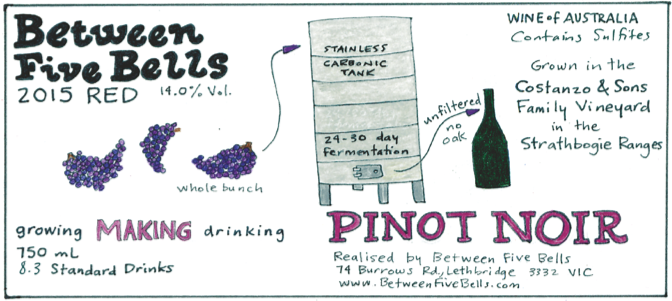 Between
Five Bells
2015 RED 14.0% Vol.
whole bunch
growing MAKING drinking
750 mL
8.3 Standard Drinks
STAINLESS
CARBONIC
TANK
29-30 day
fermentation
unfiltered
no
oak
WINE of AUSTRALIA
Contains Sulfites
Grown in the
Costanzo & Sons
Family Vineyard
in the
Strathbogie Ranges
PINOT NOIR
Realised by Between Five Bells
74 Burrows Rd, Lethbridge 3332 VIC
www.BetweenFiveBells.com